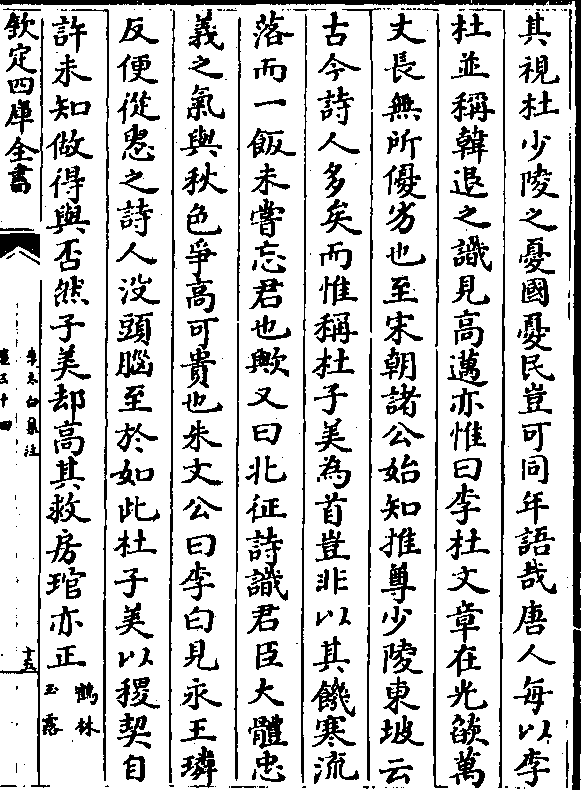 其視杜少陵之憂國憂民豈可同年語哉唐人每以李
杜並稱韓退之識見高邁亦惟曰李杜文章在光燄萬
丈長無所優劣也至宋朝諸公始知推尊少陵東坡云
古今詩人多矣而惟稱杜子美為首豈非以其饑寒流
落而一飯未嘗忘君也歟又曰北征詩識君臣大體忠
義之氣與秋色爭高可貴也朱文公曰李白見永王璘
反便從臾之詩人没頭腦至於如此杜子美以稷契自
許未知做得與否然子美却高其救房琯亦正
鶴林
玉露
欽定四庫全書
李太白集注
卷三十四
十五